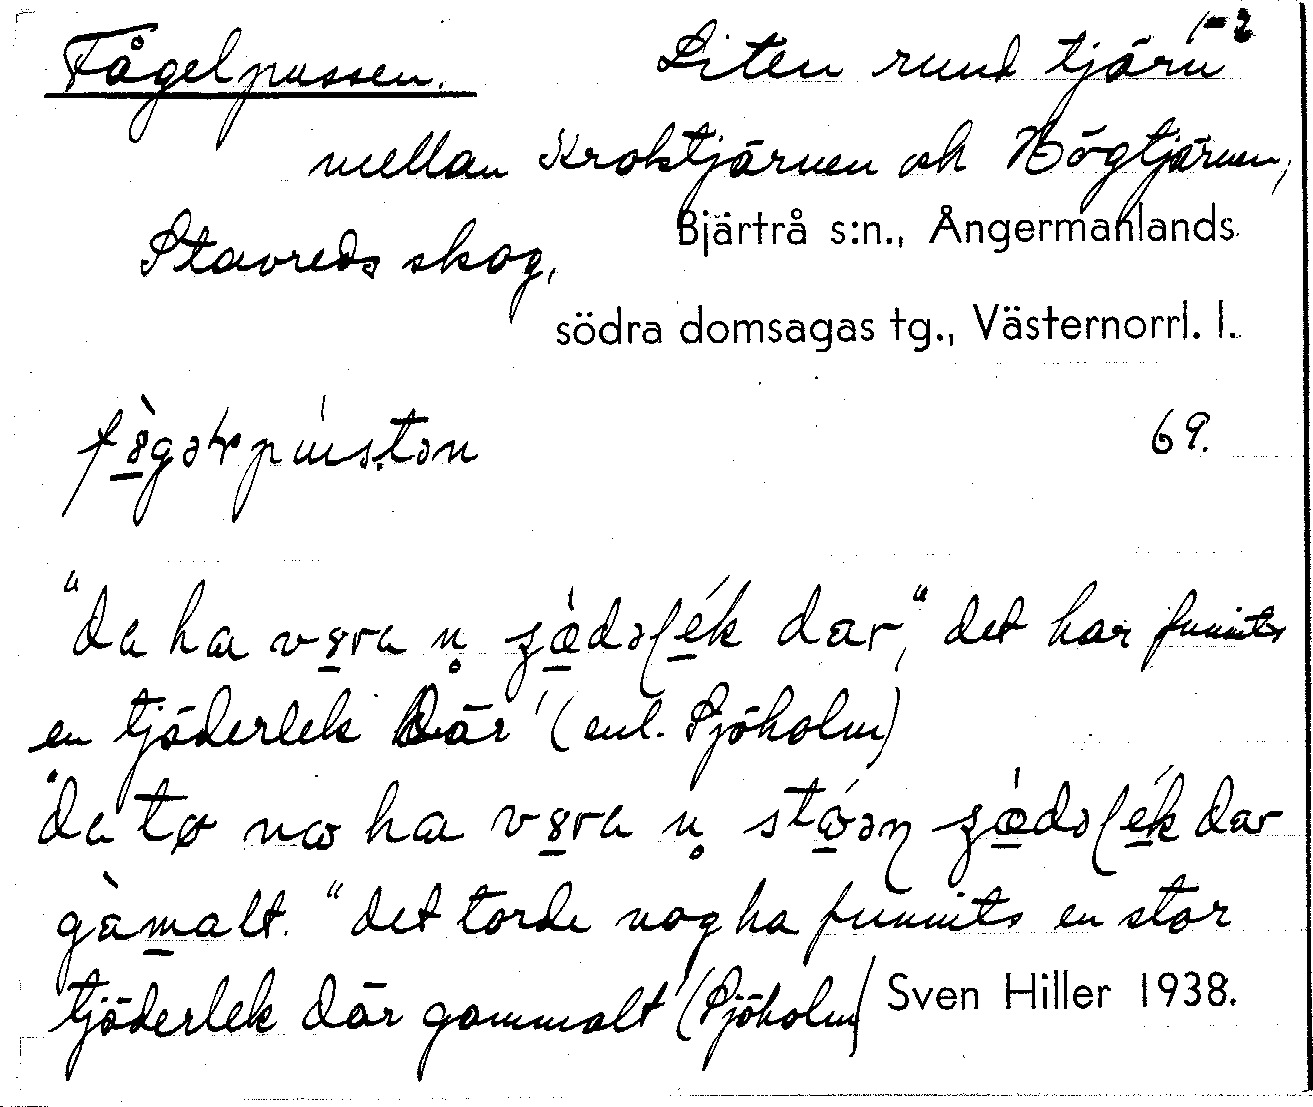 1-2
Fågelpussen. Liten rund tjärn
mellan Kroktjärnen och Högtjärnen,
Bjärtrå s:n., Ångermanlands
Stavreds skog,
södra domsagas tg., Västernorrl. l.
69.
"da ha vɣra n̥ ʒæ̀dəɭék dar," 'det har funnits
en tjäderlek där' (enl. Sjöholm)
"da tø nɷ ha vɣra n̥ stɷ́əɳ ʒæ̀dəɭék dar
gàmalt." 'det torde nog ha funnits en stor
tjäderlek där gammalt' (Sjöholm) Sven Hiller 1938.